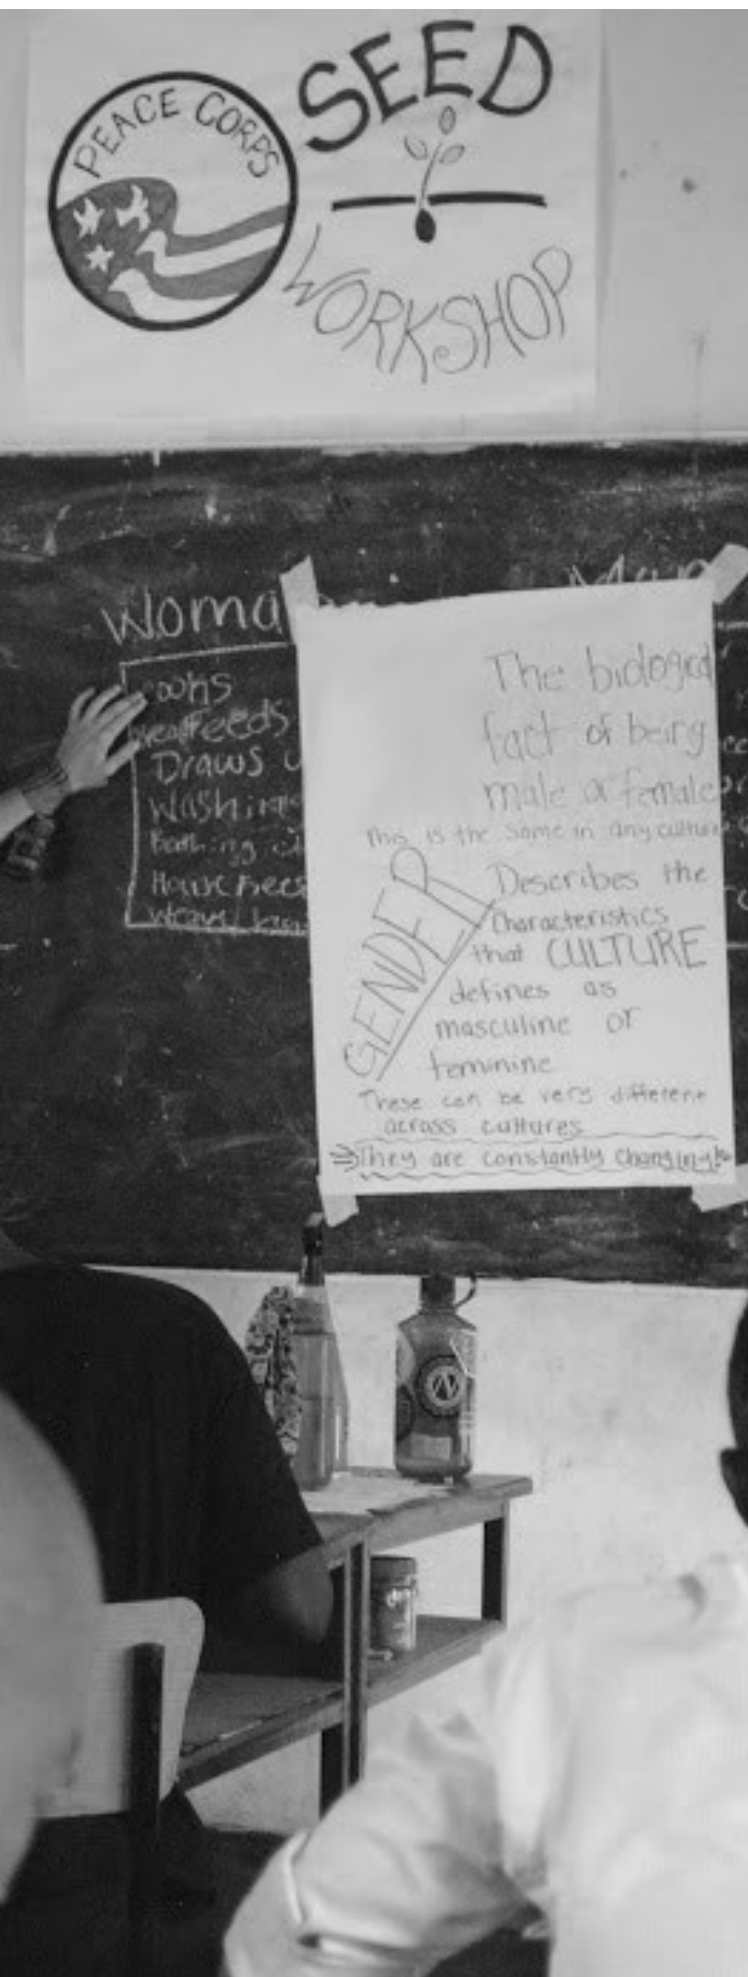 PEACE CORPS
SEED
WORKSHOP
Woma
Man
Feeds
Draws
Washing
House
The biological
fact of being
male or female
This is the same in any culture
GENDER
Describes the
Characteristics
that CULTURE
defines as
masculine or
feminine
These can be very different
across cultures
They are constantly changing